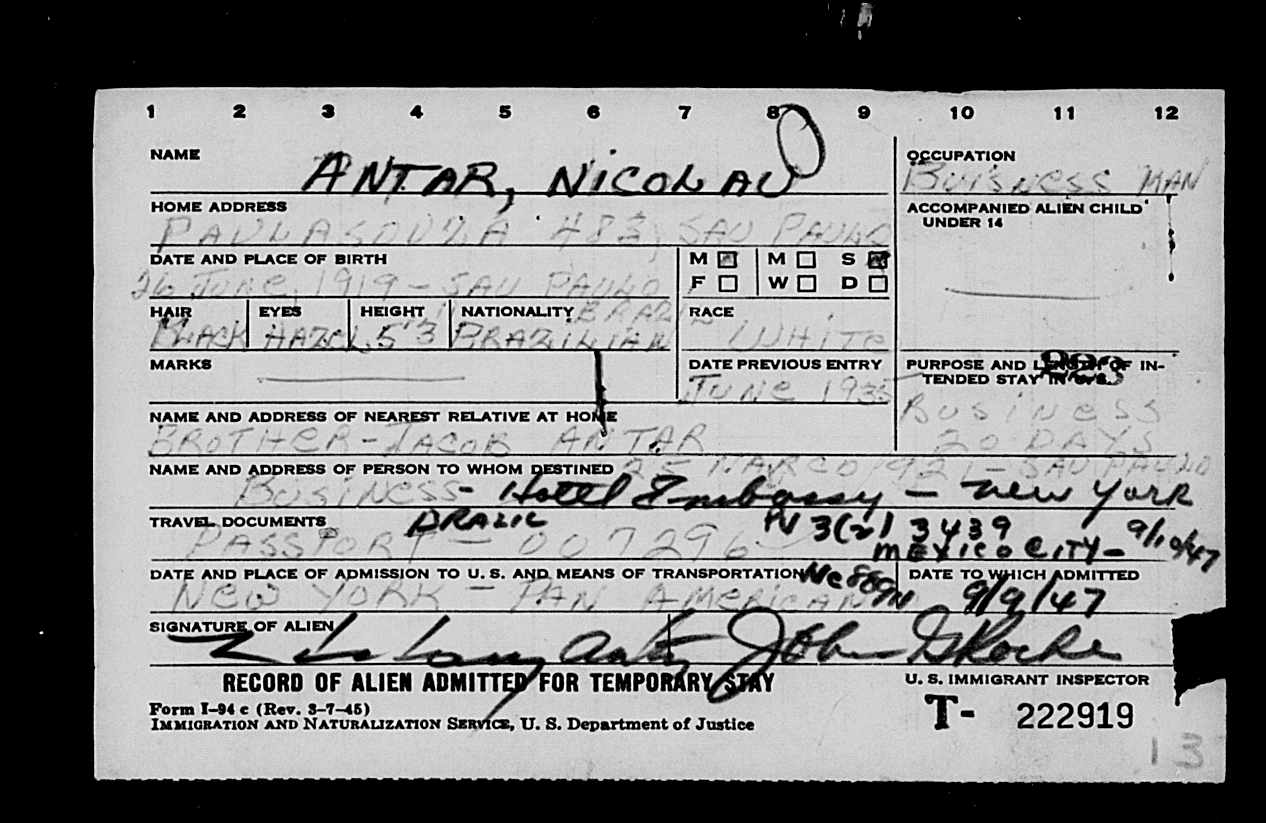 1 2 3 4 5 6 7 8 9 10 11 12
NAME
ANTAR, NICOLAU
OCCUPATION
BUISNESS MAN
HOME ADDRESS
PAULA SOUZA 483, SAU PAULO
ACCOMPANIED ALIEN CHILD UNDER 14
DATE AND PLACE OF BIRTH
26 JUNE, 1919 - SAU PAULO
M F
M S
W D
HAIR
BLACK
EYES
HAZEL
HEIGHT
5"3
NATIONALITY BRAZIL
BRAZILIAN
RACE
WHITE
MARKS
DATE PREVIOUS ENTRY
JUNE 1935
PURPOSE AND LENGTH OF IN-
TENDED STAY IN U.S.
223
BUSINESS
20 DAYS
NAME AND ADDRESS OF NEAREST RELATIVE AT HOME
BROTHER - JACOB ANTAR
25 MARCO 1921 - SAU PAULO
NAME AND ADDRESS OF PERSON TO WHOM DESTINED
BUSINESS - Hotel Embassy - New York
TRAVEL DOCUMENTS
BRAZIL
PASSPORT - 007296
PV 3(2) 3439
MEXICO CITY - 9/10/47
DATE AND PLACE OF ADMISSION TO U. S. AND MEANS OF TRANSPORTATION
NEW YORK - PAN AMERICAN
DATE TO WHICH ADMITTED
9/9/47
SIGNATURE OF ALIEN
RECORD OF ALIEN ADMITTED FOR TEMPORARY STAY
U. S. IMMIGRANT INSPECTOR
Form I-94 c (Rev. 3-7-45)
IMMIGRATION AND NATURALIZATION SERVICE, U. S. Department of Justice
T- 222919
13